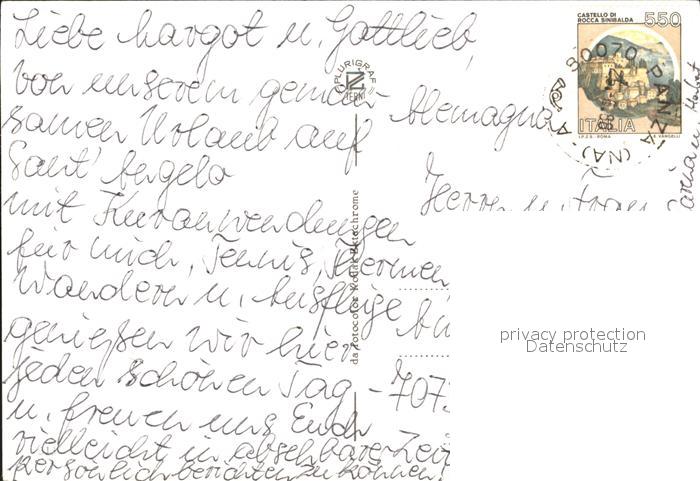 Liebe Margot u. Gottlieb,
von unserem gemein-
samen Urlaub auf
Sant' Angelo
mit Kuranwendungen
für mich, Tennis, Thermen
Wandern u. Ausflüge
genießen wir hier
jeden schönen Tag -
u. freuen uns Euch
vielleicht in absehbarer Zeit
persönlich berichten zu können!
PLURIGRAF
TERNI
da Fotocolor Kodak Ektachrome
CASTELLO DI
ROCCA SINIBALDA
550
ITALIA
I.P.Z.S. - ROMA
E. VANGELLI
80070 PANZA (NA)
Alemagna
Herrn u. Frau
707
privacy protection
Datenschutz